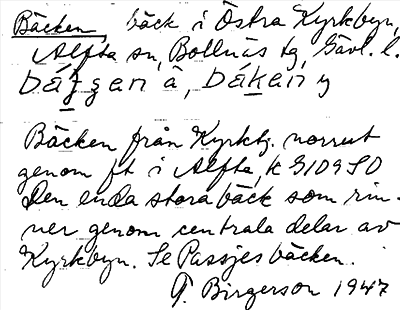 Bäcken bäck i Östra Kyrkbyn,
Alfta sn, Bollnäs tg, Gävl. l.
Bäcken från Kyrktj. norrut
genom ft i Alfta, k G109 SO
Den enda stora bäck som rin-
ner genom centrala delar av
Kyrkbyn. Se Passjesbäcken.
G. Birgerson 1947